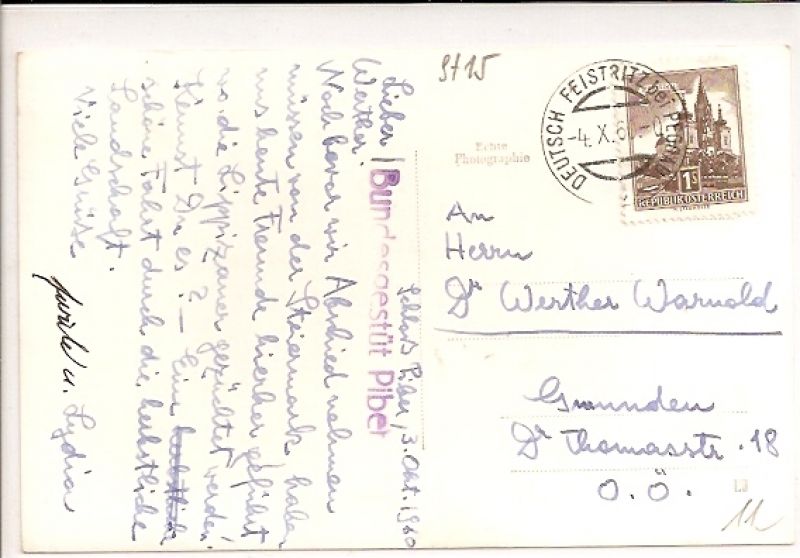 St 15
DEUTSCH FEISTRITZ bei PEGGAU
-4. X. 60
1S
REPUBLIK ÖSTERREICH
Echte
Photographie
Bundesgestüt Piber
Schloß Piber, 3. Okt. 1960
Lieber
Werther!
Noch bevor wir Abschied nehmen
müssen von der Steiermark, haben
uns heute Freunde hierher geführt
wo die Lippizaner gezüchtet werden.
Kennst Du es? – Eine herbstliche
schöne Fahrt durch die herbstliche
Landschaft.
Viele Grüße
u. Lydia
An
Herrn
Dr Werther Warnold
Gmunden
Dr Thomasstr. 18
O.Ö.
11